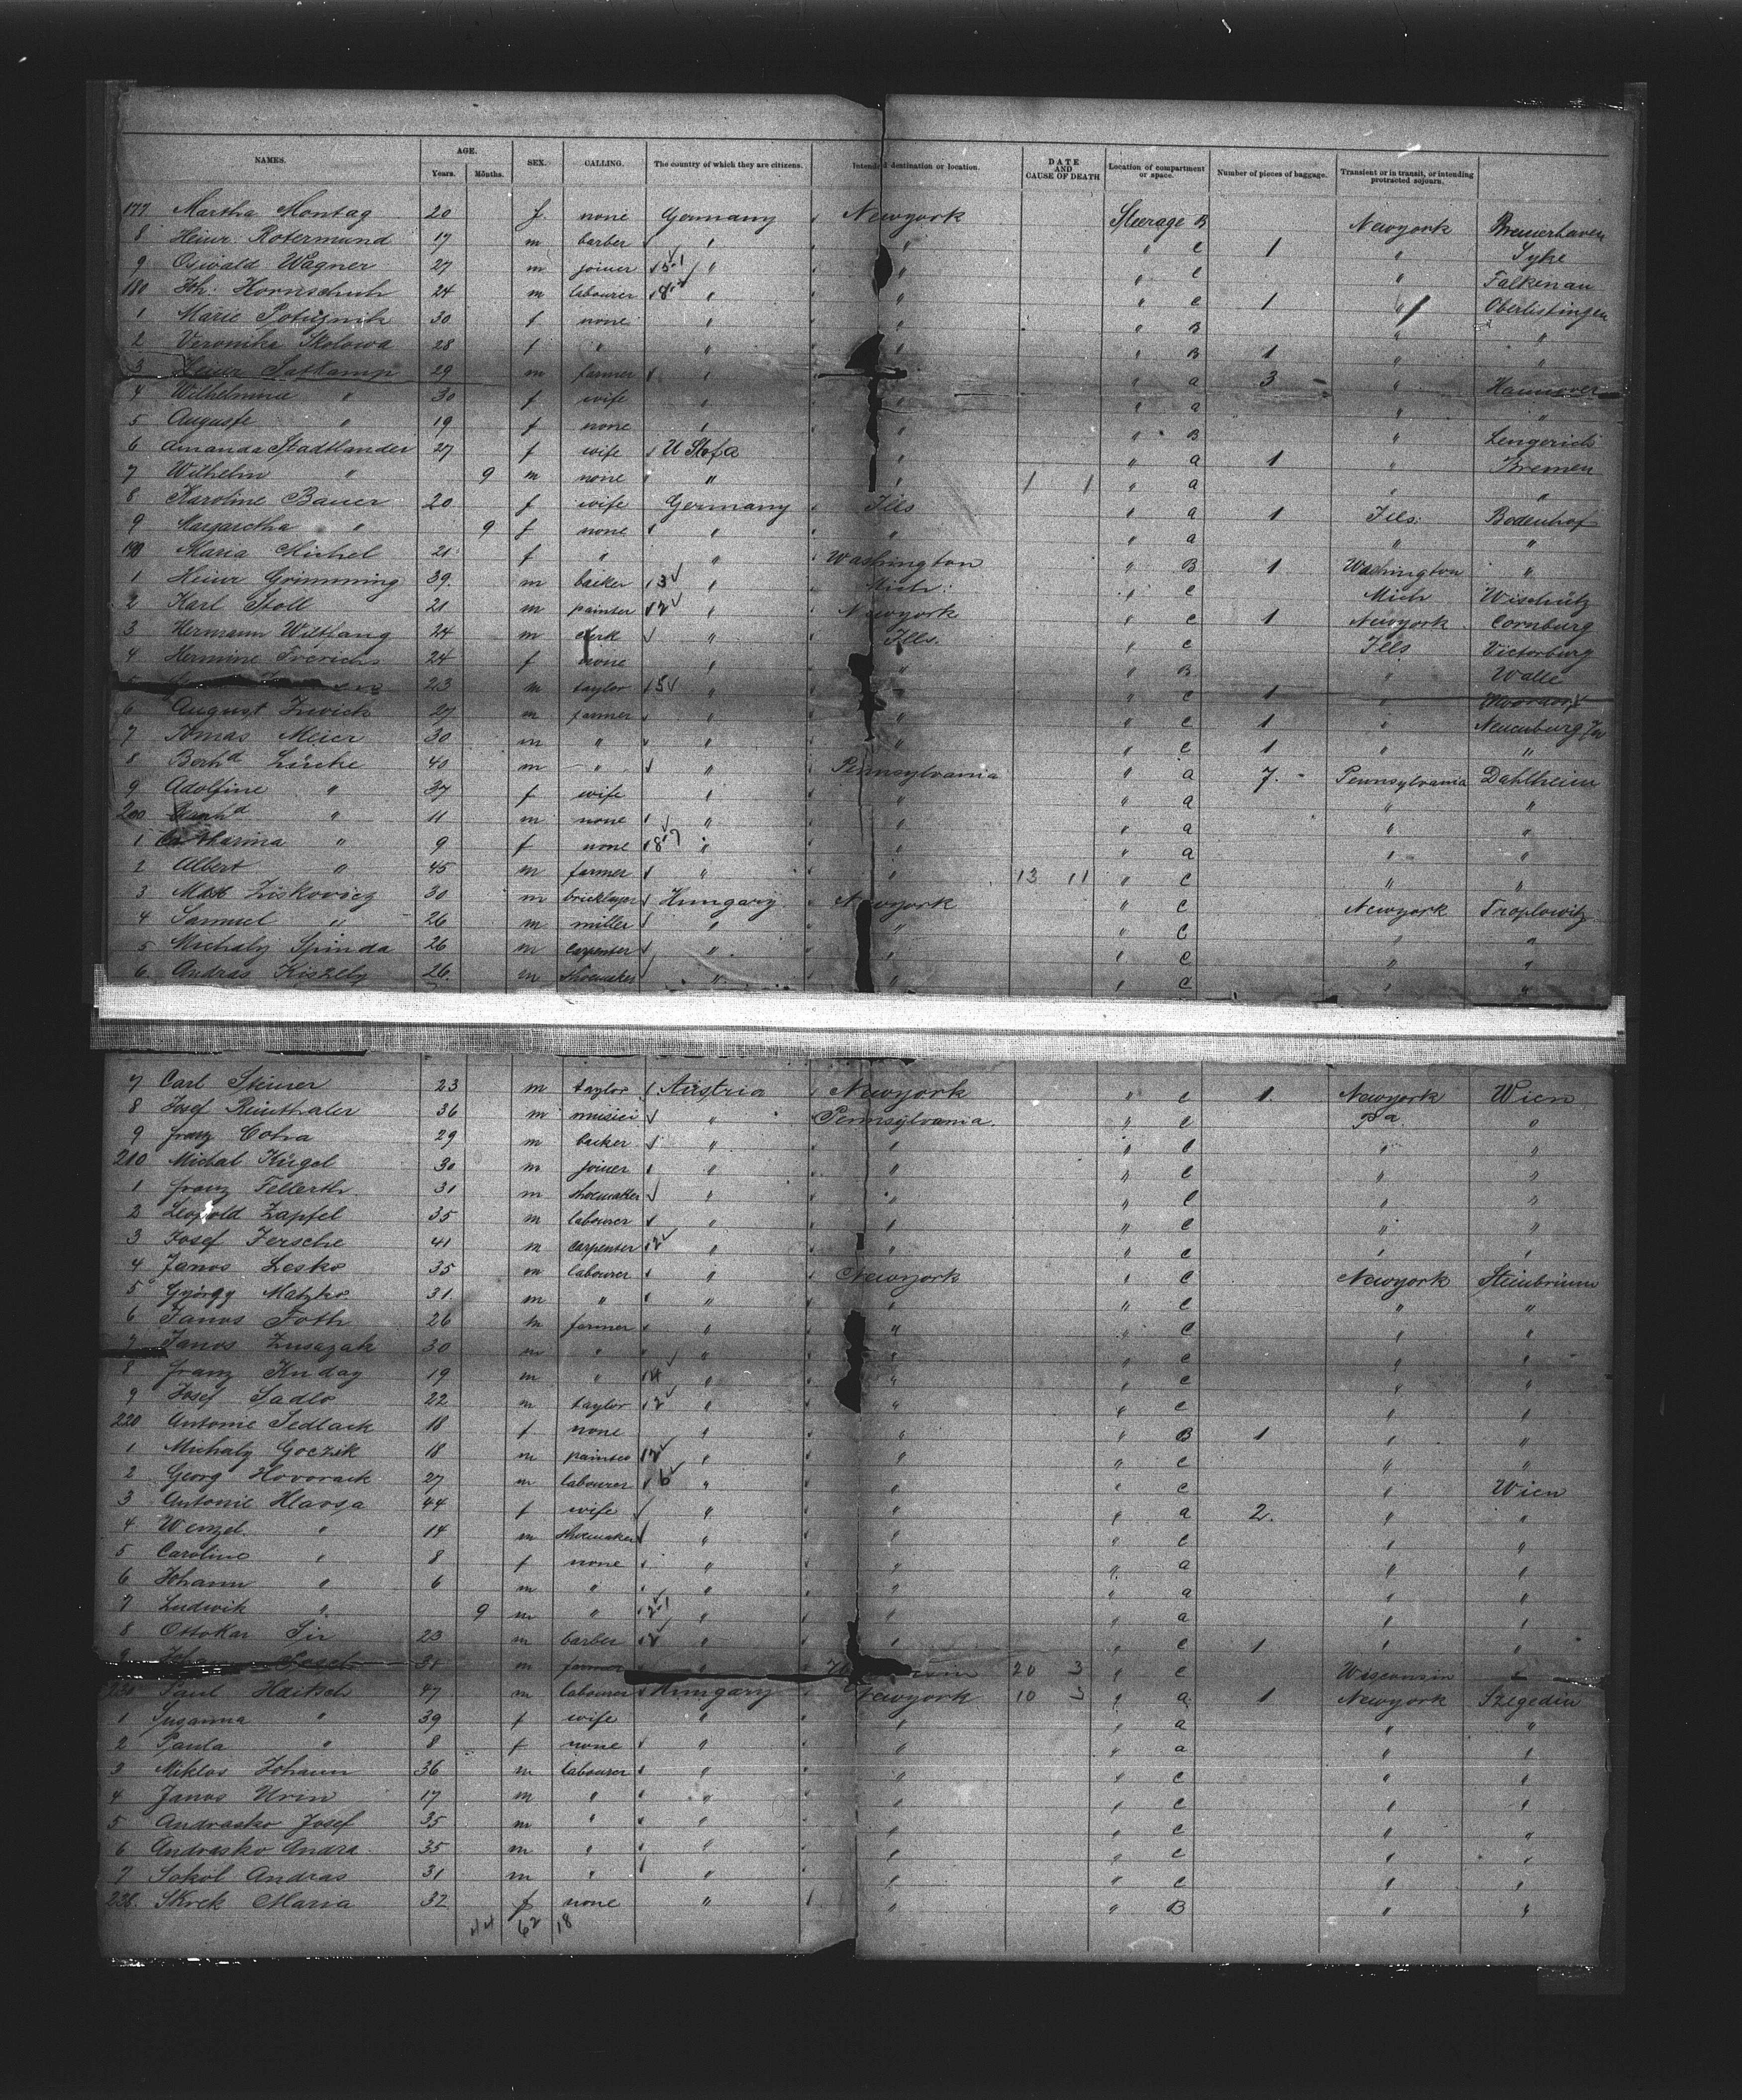 NAMES. AGE. Years. Months. SEX. CALLING. The country of which they are citizens. Intended destination or location. DATE AND CAUSE OF DEATH Location of compartment or space. Number of pieces of baggage. Transient or in transit, or intending protracted sojourn.
177 Martha Montag 20 f. none Germany Newyork Steerage B Newyork Bremerhaven
8 Heinr. Rotermund 17 m barber " " " C 1 " Syke
9 Oswald Wagner 27 m joiner " " " C " Falkenau
180 Joh. Hornschuh 24 m labourer " " " C 1 " Oberlistingen
1 Marie 30 f none " " " B " "
2 Veronika Skolowa 28 f " " " " B 1 " "
3 Heinr 29 m farmer " " " a 3 " Hannover
4 Wilhelmine " 30 f wife " " " a " "
5 Auguste " 19 f none " " " B " Lengerich
6 Amanda Stadtlander 27 f wife U St of a " " a 1 " Bremen
7 Wilhelm " 9 m none " " 1 1 " a " "
8 Karoline Bauer 20 f wife Germany Ills " a 1 Ills: Bodenhof
9 Margaretha " 9 f none " " " a " "
190 Maria Michel 21 f " " Washington " B 1 Washington "
1 Heinr Grimming 39 m backer " Mich: " C Mich Wischütz
2 Karl Stoll 21 m painter " Newyork " C 1 Newyork Cornburg
3 Hermann Wiltfang 24 m clerk " Ills. " C Ills Victorburg
4 Hermine Frerichs 24 f none " " " B " Walle
23 m taylor " " " C 1 "
6 August Zwick 27 m farmer " " " C 1 " Neuenburg
7 Tomas Meier 30 m " " " " C 1 " "
8 Berhd 40 m " " Pennsylvania " a 7. Pennsylvania Dahlheim
9 Adolfine " 37 f wife " " " a " "
200 " 11 m none " " " a " "
1 Catharina " 9 f none " " " a " "
2 Albert " 45 m farmer " " 13 11 " C " "
3 Max Ziskovicz 30 m bricklayer Hungary Newyork " C Newyork Troplowitz
4 Samuel " 26 m miller " " " C " "
5 Michaly Spinda 26 m carpenter " " " C " "
6 Andras Kiszely 26 m shoemaker " " " C " "
7 Carl Steiner 23 m taylor Austria Newyork " C 1. Newyork Wien
8 Josef Reinthaler 36 m musici " Pennsylvania. " C Pa. "
9 Franz Cotra 29 m backer " " " C " "
210 Michal Kügel 30 m joiner " " " C " "
1 Franz Fellerth 31 m shoemaker " " " C " "
2 Leopold Zapfel 35 m labourer " " " C " "
3 Josef Jersche 41 m carpenter " " " C " "
4 Janos Lesko 35 m labourer " Newyork " C Newyork Steinbrünn
5 György Matzko 31. m " " " " C " "
6 Janos Toth 26 m farmer " " " C " "
7 Janos 30 m " " " " C " "
8 Franz 19 m " " " " C " "
9 Josef Sadlo 22 m taylor " " " C " "
220 Antonie Sedlack 18 f none " " " B 1 " "
1 Michaly Goczik 18 m painter " " " C " "
2 Georg Hovorack 27 m labourer " " " C " Wien
3 Antonie Hlavsa 44 f wife " " " a 2. " "
4 Wenzel " 14 m shoemaker " " " C " "
5 Caroline " 8 f none " " " a " "
6 Johann " 6 m " " " " a " "
7 Ludwik " 9 m " " " " a " "
8 Ottokar Sir 23 m barber " " " C 1 " "
9 38 m farmer " 20 3 " C Wisconsin "
230 Paul Haitsch 47 m labourer Hungary Newyork 10 3 " a 1 Newyork Szegedin
1 Susanna " 39 f wife " " " a " "
2 Paula " 8 f none " " " a " "
3 Miklos Johann 36 m labourer " " " C " "
4 Janos Urin 17 m " " " " C " "
5 Andrasko Josef 35 m " " " " C " "
6 Andrasko Andra 35 m " " " " C " "
7 Sokol Andras 31 m " " " " C " "
238. Skrek Maria 32 f none " " " B " "
44 62 18